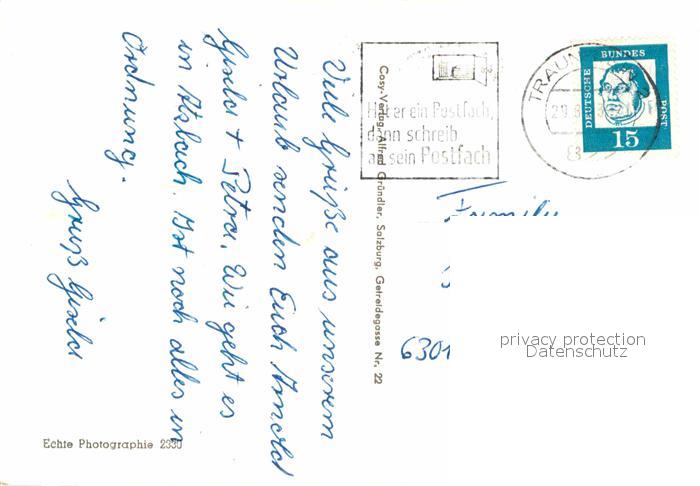 Viele Grüße aus unserem
Urlaub senden Euch Arnold
Gisela + Petra. Wie geht es
in Atzbach. Ist noch alles in
Ordnung.
Gruß Gisela
Echte Photographie 2330
Cosy-Verlag Alfred Gründler, Salzburg, Getreidegasse Nr. 22
Hat er ein Postfach,
dann schreib
an sein Postfach
TRAUN
DEUTSCHE
BUNDES
POST
15
Familie
6301
privacy protection
Datenschutz